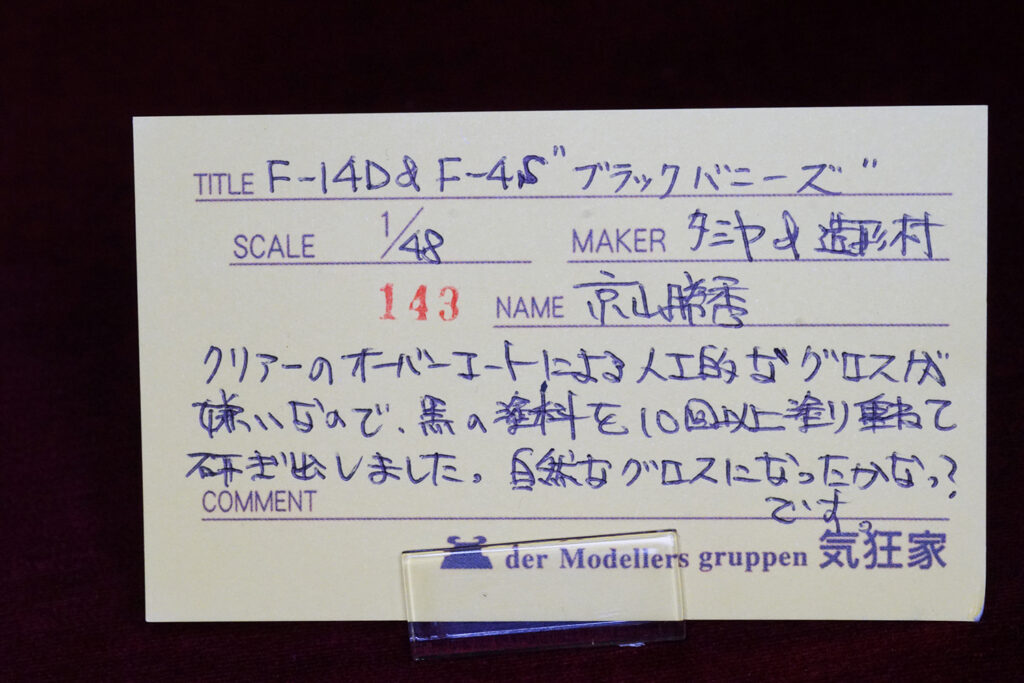 TITLE F-14D & F-4S "ブラックバニーズ"
SCALE 1/48 MAKER タミヤ & 造形村
143 NAME 京山勝秀
クリアーのオーバーコートによる人工的なグロスが
嫌いなので、黒の塗料を10回以上塗り重ねて
研ぎ出しました。自然なグロスになったかなっ?
です。
COMMENT
der Modellers gruppen 気狂家